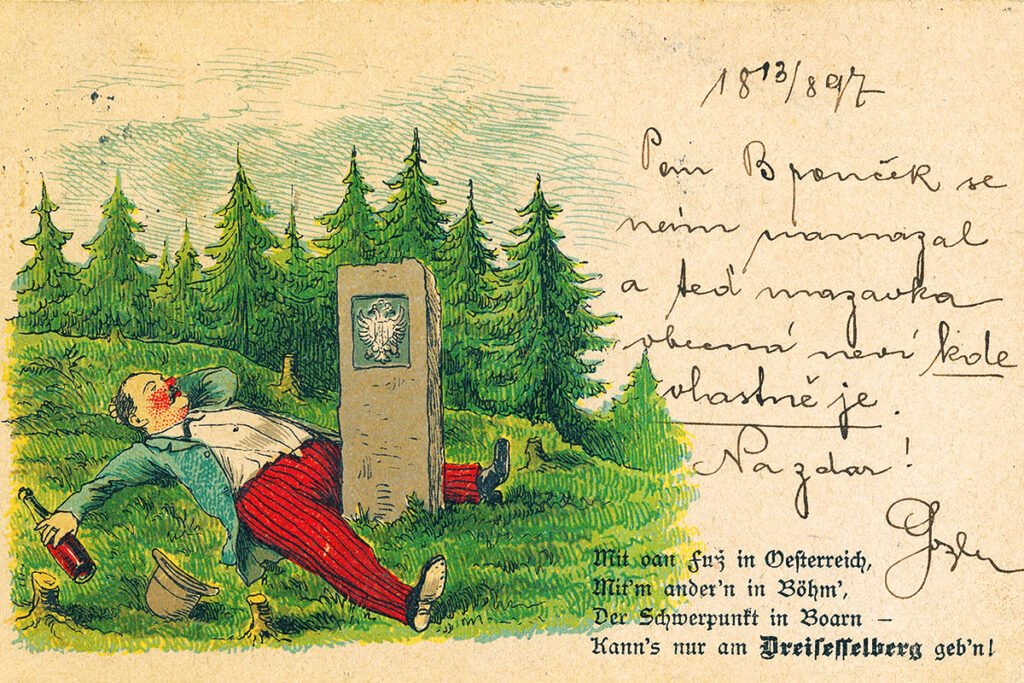 18 13/8 97
Pan Brouček se
nám namazal
a teď mazavka
obecná neví kde
vlastně je.
Na zdar!
Mit oan Fuß in Oesterreich,
Mit'm ander'n in Böhm',
Der Schwerpunkt in Boarn –
Kann's nur am Dreisesselberg geb'n!